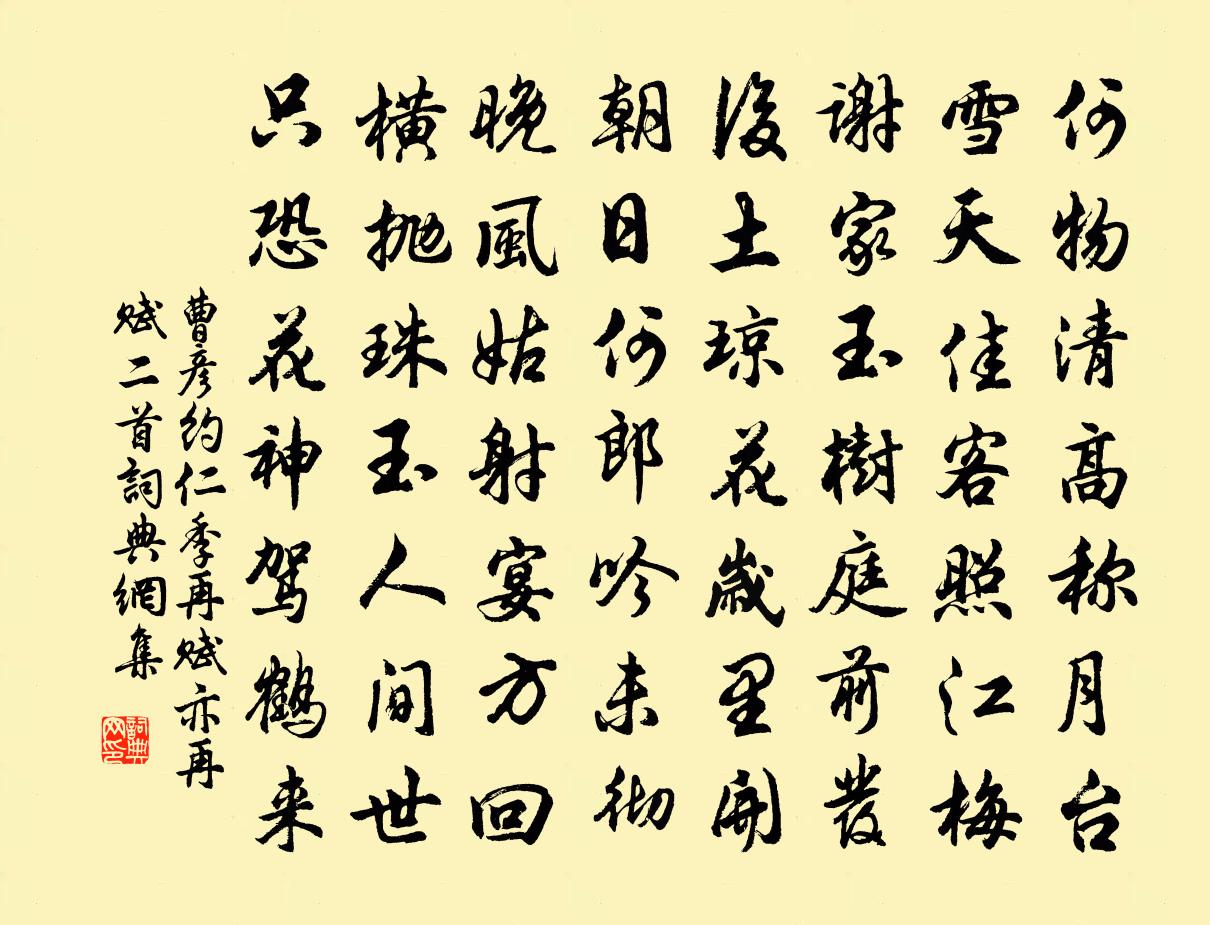 何物清高称月台
雪天佳客照江梅
谢家玉樹庭前發
後土琼花歲里開
朝日何郎吟未彻
晚風姑射宴方回
横抛珠玉人间世
只恐花神驾鹤来
曹彦约仁季再赋亦再
赋二首詞典網集
詞典网印